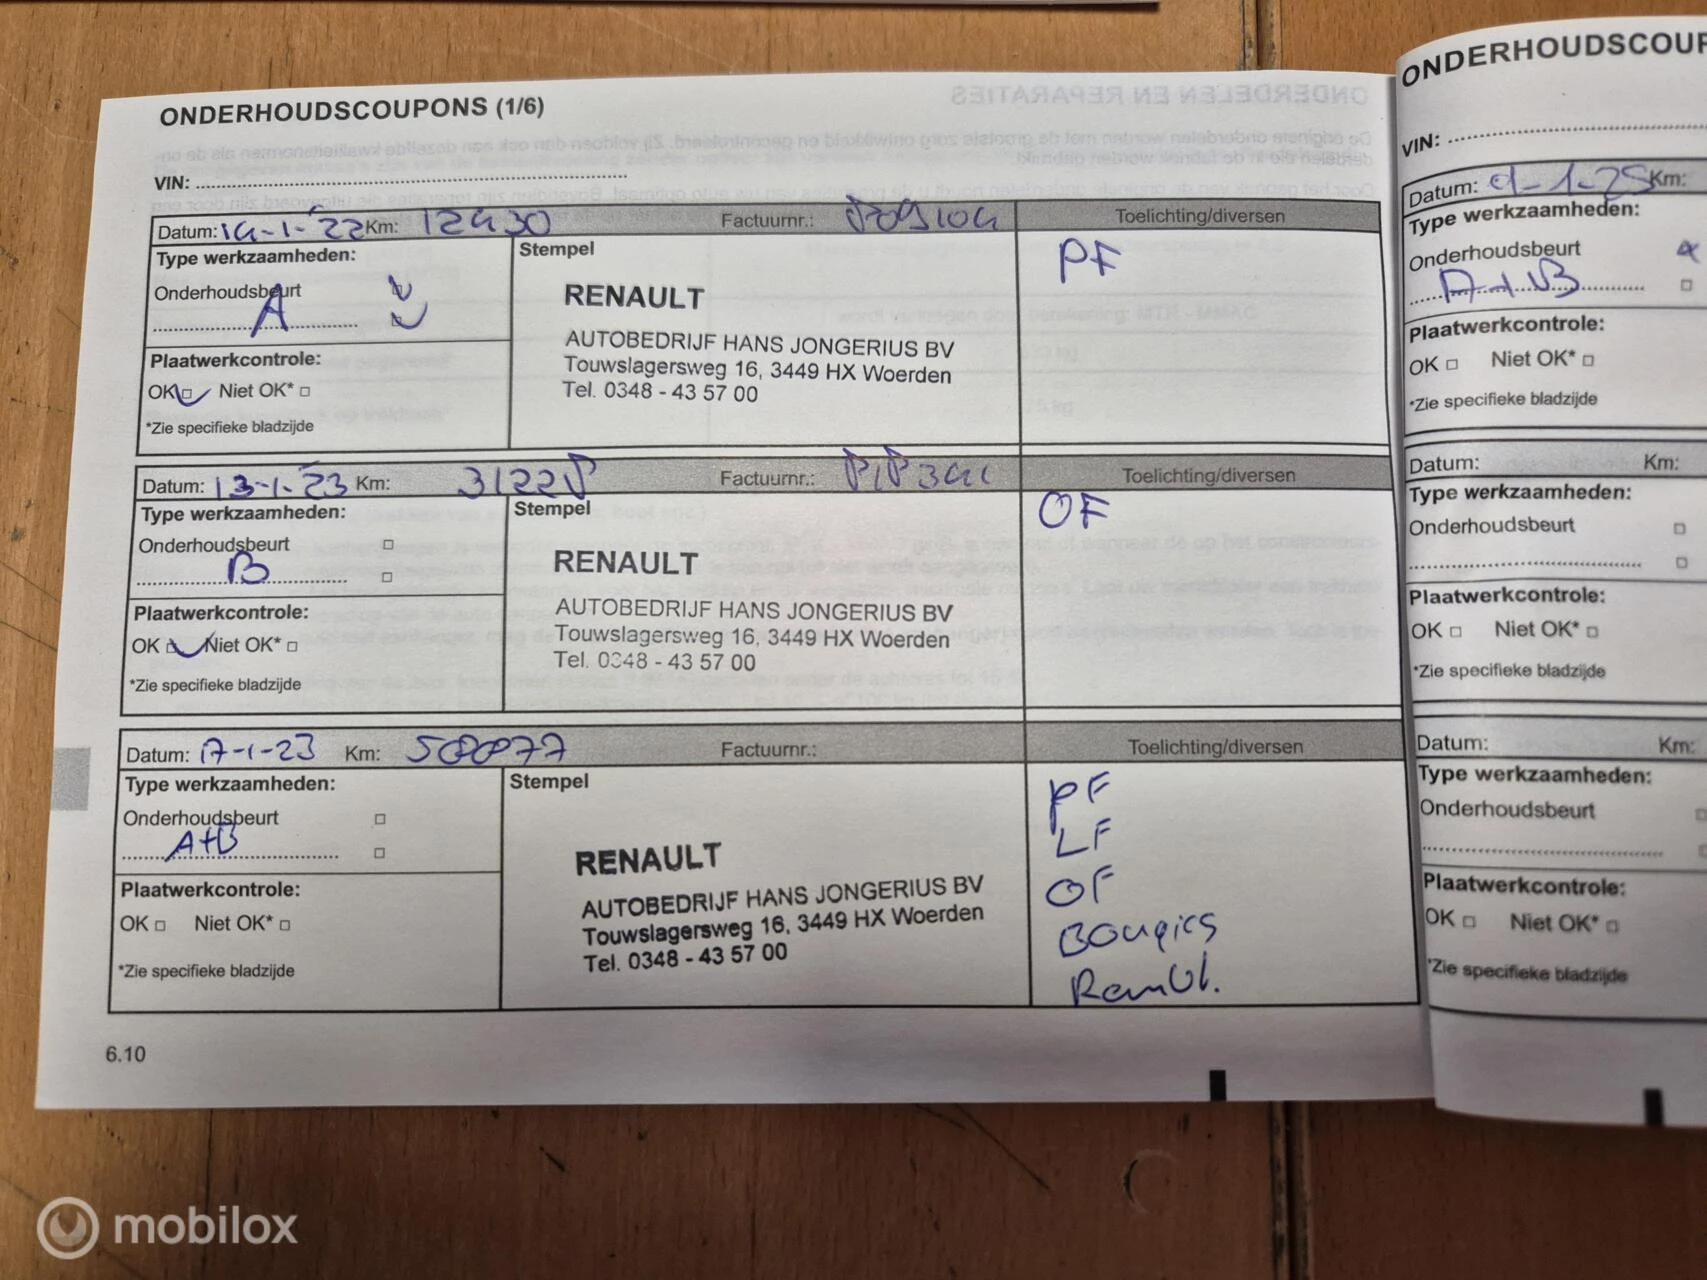 ONDERHOUDSCOUPONS (1/6)
VIN:
Datum: 14-1-'22 Km: 12430 Factuurnr.: Toelichting/diversen
Type werkzaamheden:
Onderhoudsbeurt
A
Plaatwerkcontrole:
OK Niet OK*
*Zie specifieke bladzijde
Stempel
RENAULT
AUTOBEDRIJF HANS JONGERIUS BV
Touwslagersweg 16, 3449 HX Woerden
Tel. 0348 - 43 57 00
PF
Datum: 13-1-'23 Km: 31228 Factuurnr.: Toelichting/diversen
Type werkzaamheden:
Onderhoudsbeurt
B
Plaatwerkcontrole:
OK Niet OK*
*Zie specifieke bladzijde
Stempel
RENAULT
AUTOBEDRIJF HANS JONGERIUS BV
Touwslagersweg 16, 3449 HX Woerden
Tel. 0348 - 43 57 00
OF
Datum: 17-1-23 Km: Factuurnr.: Toelichting/diversen
Type werkzaamheden:
Onderhoudsbeurt
A+B
Plaatwerkcontrole:
OK Niet OK*
*Zie specifieke bladzijde
Stempel
RENAULT
AUTOBEDRIJF HANS JONGERIUS BV
Touwslagersweg 16, 3449 HX Woerden
Tel. 0348 - 43 57 00
PF
LF
OF
Bougies
Remvl.
6.10
ONDERDELEN EN REPARATIES
ONDERHOUDSCOUP
VIN:
Datum: Km:
Type werkzaamheden:
Onderhoudsbeurt
A+B
Plaatwerkcontrole:
OK Niet OK*
*Zie specifieke bladzijde
Datum: Km:
Type werkzaamheden:
Onderhoudsbeurt
Plaatwerkcontrole:
OK Niet OK*
*Zie specifieke bladzijde
Datum: Km:
Type werkzaamheden:
Onderhoudsbeurt
Plaatwerkcontrole:
OK Niet OK*
*Zie specifieke bladzijde
mobilox